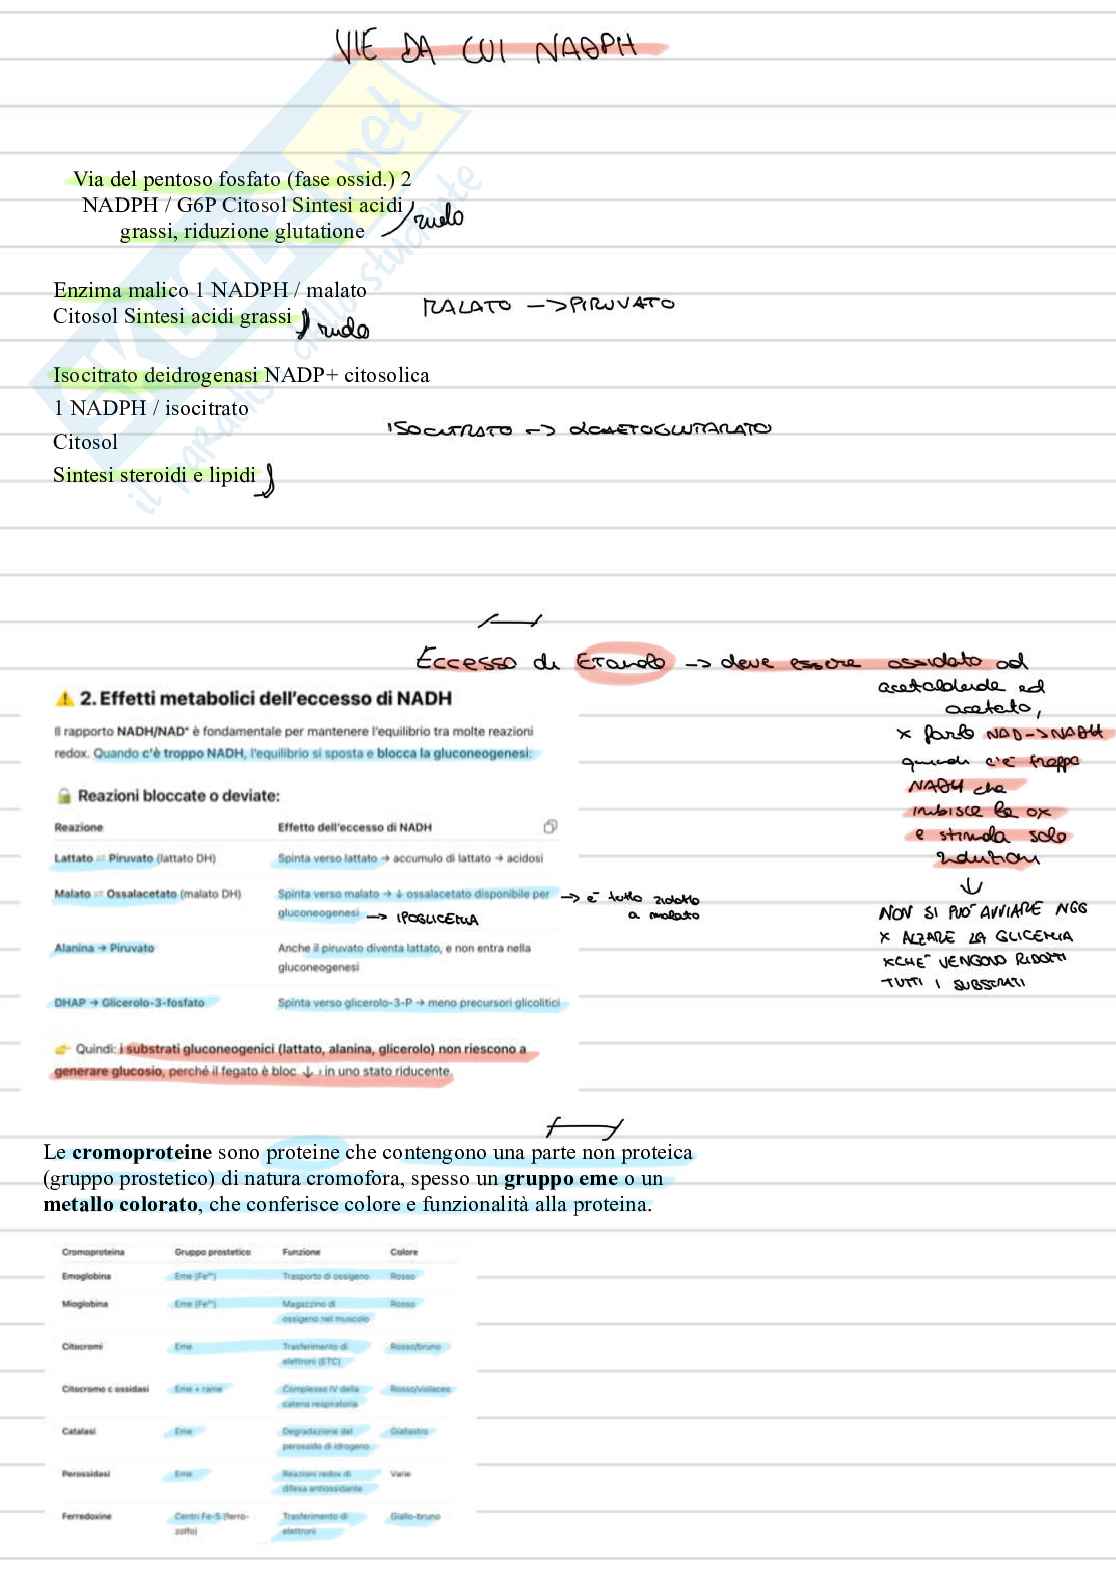 VIE DA CUI NADPH
Via del pentoso fosfato (fase ossid.) 2
NADPH / G6P Citosol Sintesi acidi
grassi, riduzione glutatione
ruolo
Enzima malico 1 NADPH / malato
Citosol Sintesi acidi grassi
ruolo
MALATO -> PIRUVATO
Isocitrato deidrogenasi NADP+ citosolica
1 NADPH / isocitrato
Citosol
Sintesi steroidi e lipidi
ISOCITRATO -> αCHETOGLUTARATO
Eccesso di Etanolo -> deve essere ossidato ad
acetaldeide ed
acetato,
x farlo NAD->NADH
quindi c'è troppo
NADH che
inibisce le ox
e stimola solo
riduzioni
↓
NON SI PUÒ AVVIARE NGG
X ALZARE LA GLICEMIA
XCHÈ VENGONO RIDOTTI
TUTTI I SUBSTRATI
⚠️ 2. Effetti metabolici dell'eccesso di NADH
Il rapporto NADH/NAD⁺ è fondamentale per mantenere l'equilibrio tra molte reazioni
redox. Quando c'è troppo NADH, l'equilibrio si sposta e blocca la gluconeogenesi:
🔒 Reazioni bloccate o deviate:
Reazione Effetto dell'eccesso di NADH
Lattato ⇌ Piruvato (lattato DH) Spinta verso lattato → accumulo di lattato → acidosi
Malato ⇌ Ossalacetato (malato DH) Spinta verso malato → ↓ ossalacetato disponibile per
gluconeogenesi -> IPOGLICEMIA
-> è tutto ridotto
a malato
Alanina → Piruvato Anche il piruvato diventa lattato, e non entra nella
gluconeogenesi
DHAP → Glicerolo-3-fosfato Spinta verso glicerolo-3-P → meno precursori glicolitici
👉 Quindi: i substrati gluconeogenici (lattato, alanina, glicerolo) non riescono a
generare glucosio, perché il fegato è bloc ↓ in uno stato riducente.
Le cromoproteine sono proteine che contengono una parte non proteica
(gruppo prostetico) di natura cromofora, spesso un gruppo eme o un
metallo colorato, che conferisce colore e funzionalità alla proteina.
Cromoproteina Gruppo prostetico Funzione Colore
Emoglobina Eme (Fe²⁺) Trasporto di ossigeno Rosso
Mioglobina Eme (Fe²⁺) Magazzino di
ossigeno nel muscolo Rosso
Citocromi Eme Trasferimento di
elettroni (ETC) Rosso/bruno
Citocromo c ossidasi Eme + rame Complesso IV della
catena respiratoria Rosso/violaceo
Catalasi Eme Degradazione del
perossido di idrogeno Giallastro
Perossidasi Eme Reazioni redox di
difesa antiossidante Varie
Ferredoxine Centri Fe-S (ferro-
zolfo) Trasferimento di
elettroni Giallo-bruno
SKUOLA.net
il paradiso dello studente